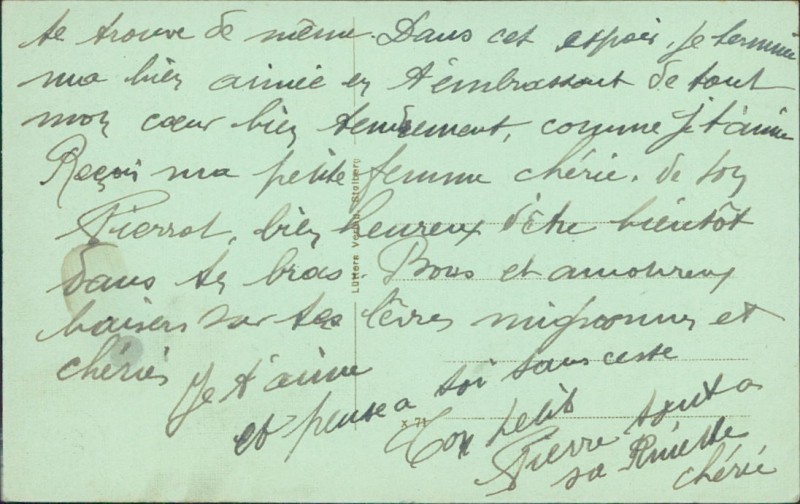 te trouve de même. Dans cet espoir, je termine
ma bien aimée en t'embrassant de tout
mon cœur bien tendrement, comme je t'aime
Reçois ma petite femme chérie, de ton
Pierrot, bien heureux d'être bientôt
dans tes bras. Bons et amoureux
baisers sur tes lèvres mignonnes et
chéries Je t'aime
et pense a toi sans cesse
Ton petit
Pierre tout a
sa Rinette
chérie
Lüttera Verlag, Stolberg
X 71